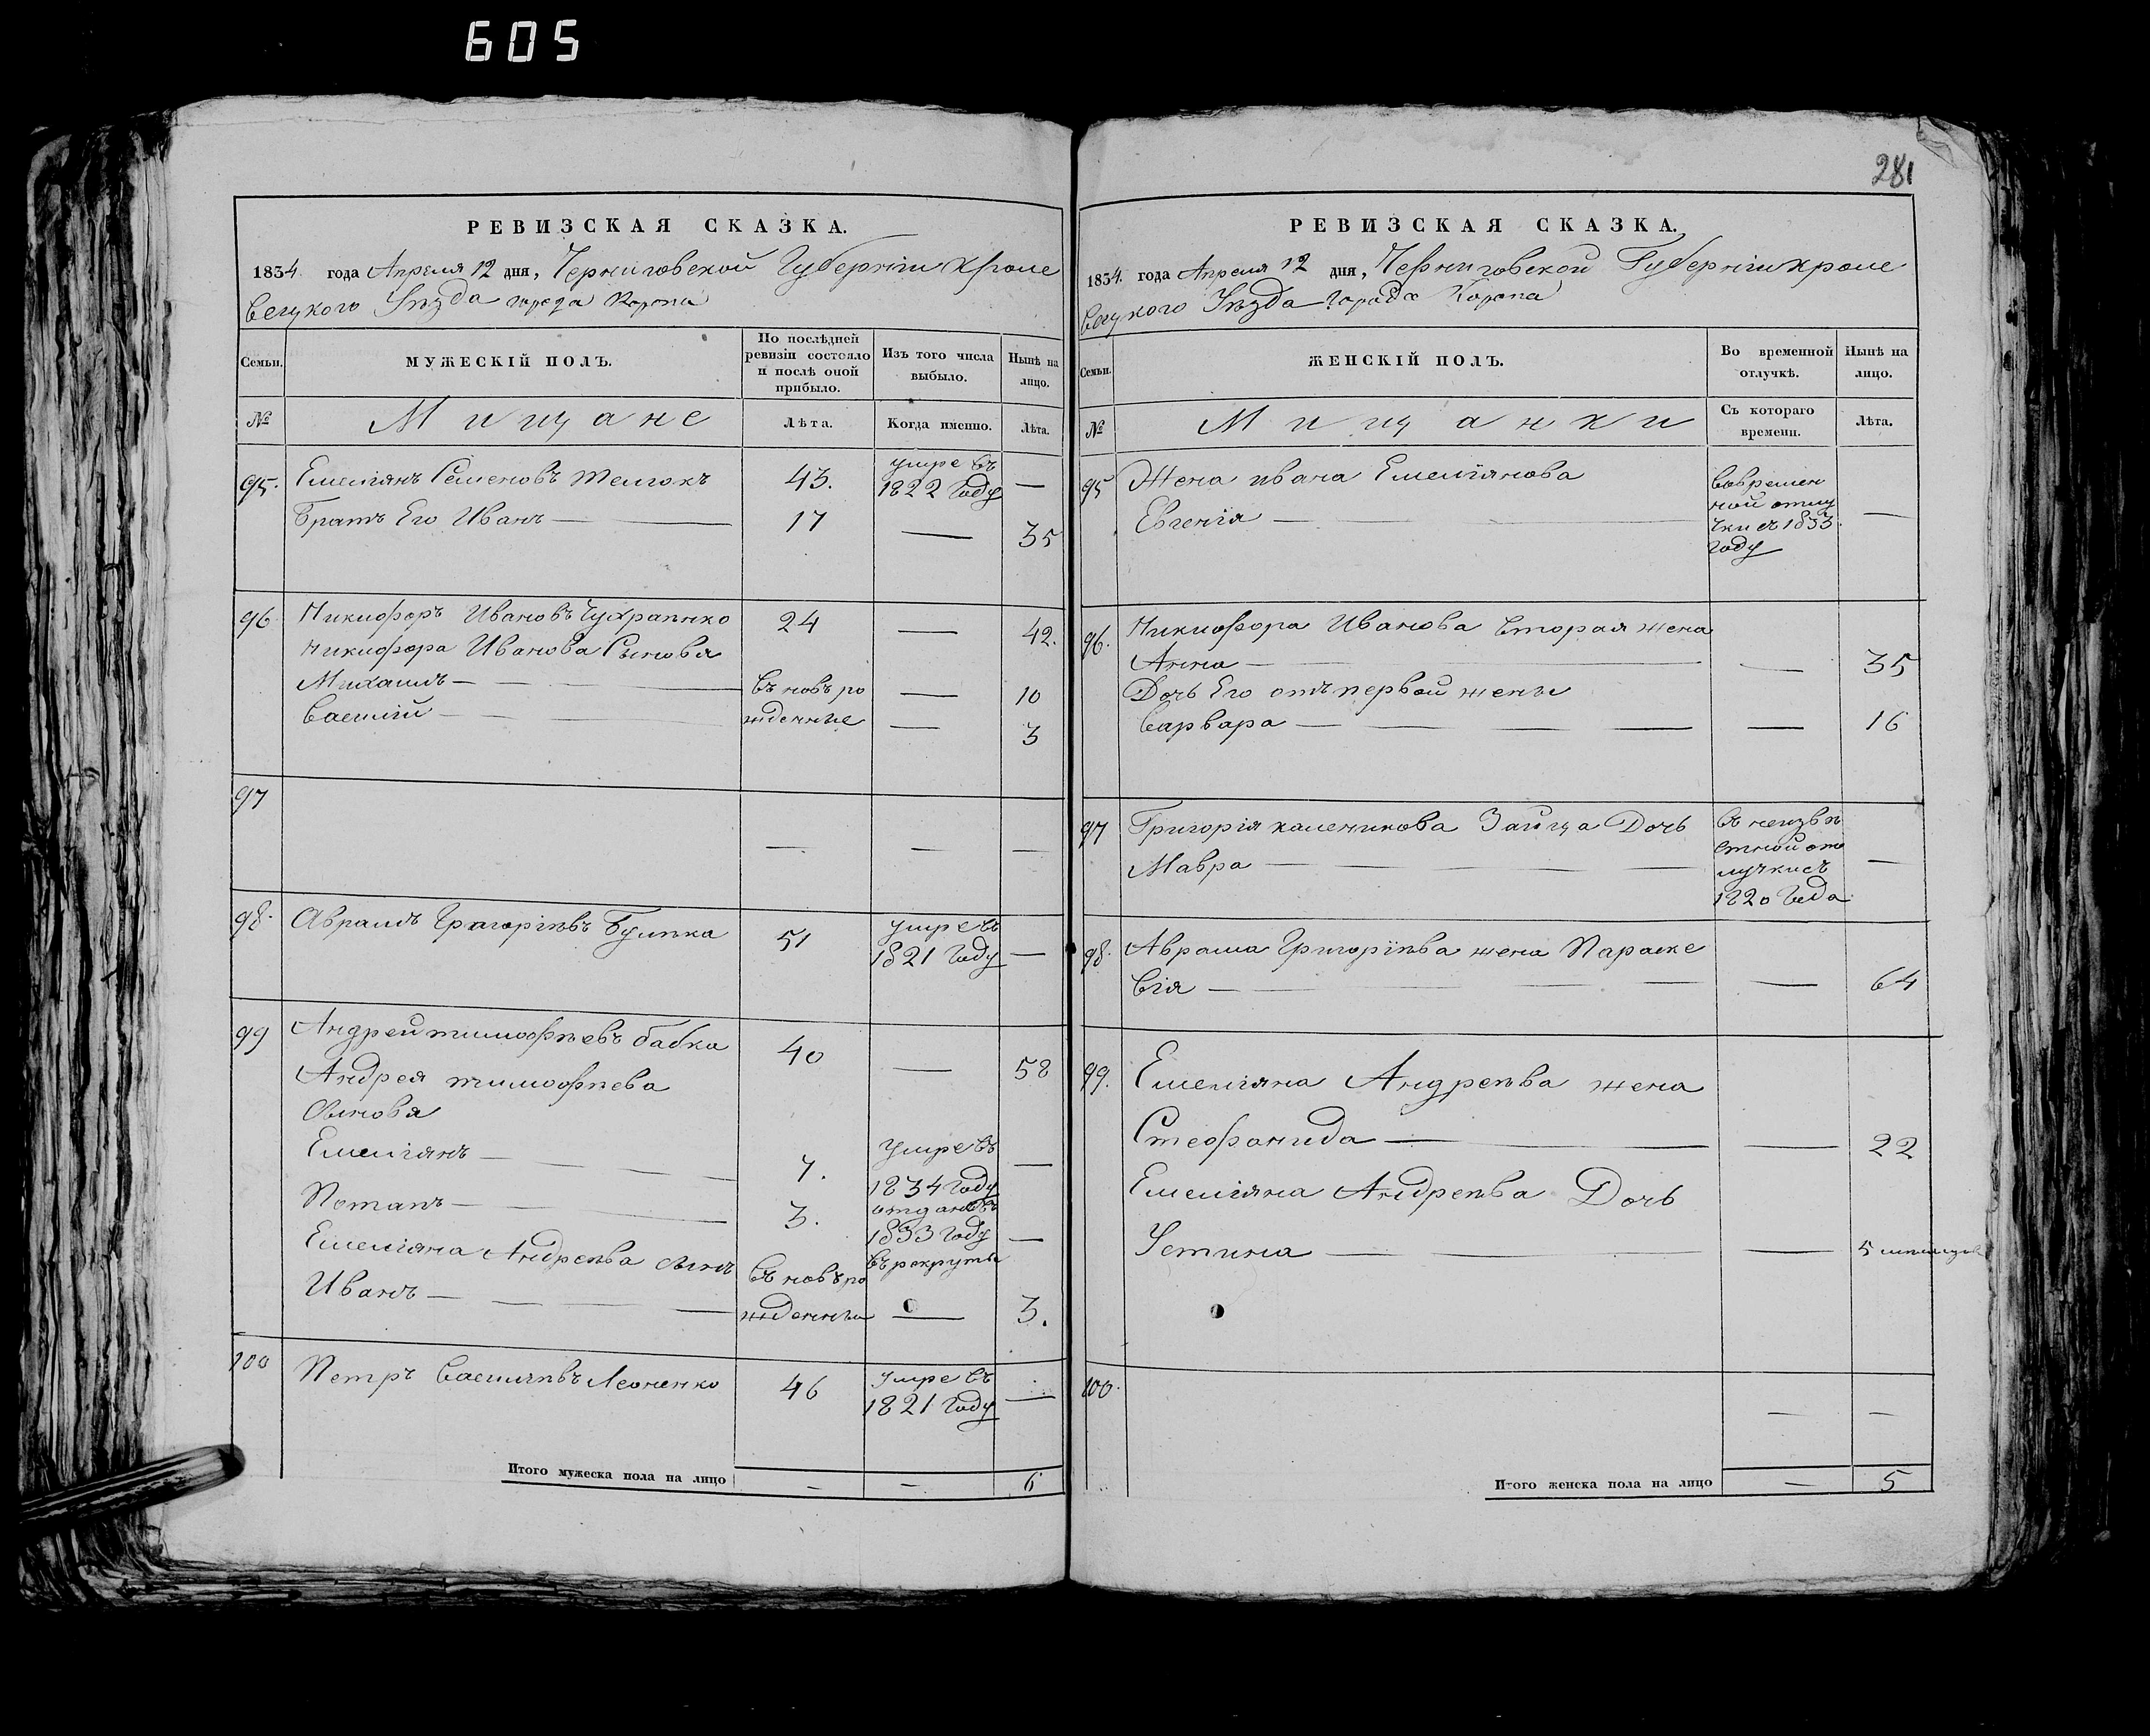 605
281
РЕВИЗСКАЯ СКАЗКА.
1834. года Апреля 12 дня, Черниговской Губернiи Кроле
вецкого Уѣзда города Коропа
Семьи. МУЖЕСКIЙ ПОЛЪ. По послѣдней ревизiи состояло и послѣ оной прибыло. Изъ того числа выбыло. Нынѣ на лицо.
№ Мищане Лѣта. Когда именно. Лѣта.
95. Емелiянъ Семеновъ 43. умре въ 1822 Году —
Братъ Его Иванъ — 17 — 35
96 Никифоръ Ивановъ 24 — 42.
Никифора Иванова Сыновя
Михаилъ — въ новъ ро — 10
Василiй — жденные — 3
97 — — —
98. Аврамъ Григорiевъ 51 умре въ 1821 Году —
99 Андрей тимофѣевъ бабка 40 — 58
Андрея тимофѣева
Сыновя
Емелiянъ — 7. Умре въ 1834 Году —
Потапъ — 3. отданъ въ 1833 Году въ рекруты —
Емелiяна Андреѣва сынъ въ новъ ро
Иванъ — жденный — 3.
100 Петръ Василiевъ Леоненко 46 Умре въ 1821 Году —
Итого мужеска пола на лицо — — 6
РЕВИЗСКАЯ СКАЗКА.
1834. года Апреля 12 дня, Черниговской Губернiи Кроле
вецкого Уѣзда Города Коропа
Семьи. ЖЕНСКIЙ ПОЛЪ. Во временной отлучкѣ. Нынѣ на лицо.
№ Мищанки Съ котораго времени. Лѣта.
95 Жена ивана Емелiянова вовремен
Евгенiя — ной отлу
чки съ 1833 —
Году
96. Никифора Иванова вторая жена
Анна — — 35
Дочь Его отъ первой жены
Варвара — — 16
97 Григорiя каленикова Зайца Дочь въ неизвѣ
Мавра — стной от
лучки съ —
1820 Года
98. Аврама Григорiѣва жена Параске
вiя — — 64
99. Емелiяна Андреѣва жена
Стефанида — — 22
Емелiяна Андреѣва Дочь
Устина — — 5
100. — —
Итого женска пола на лицо — 5